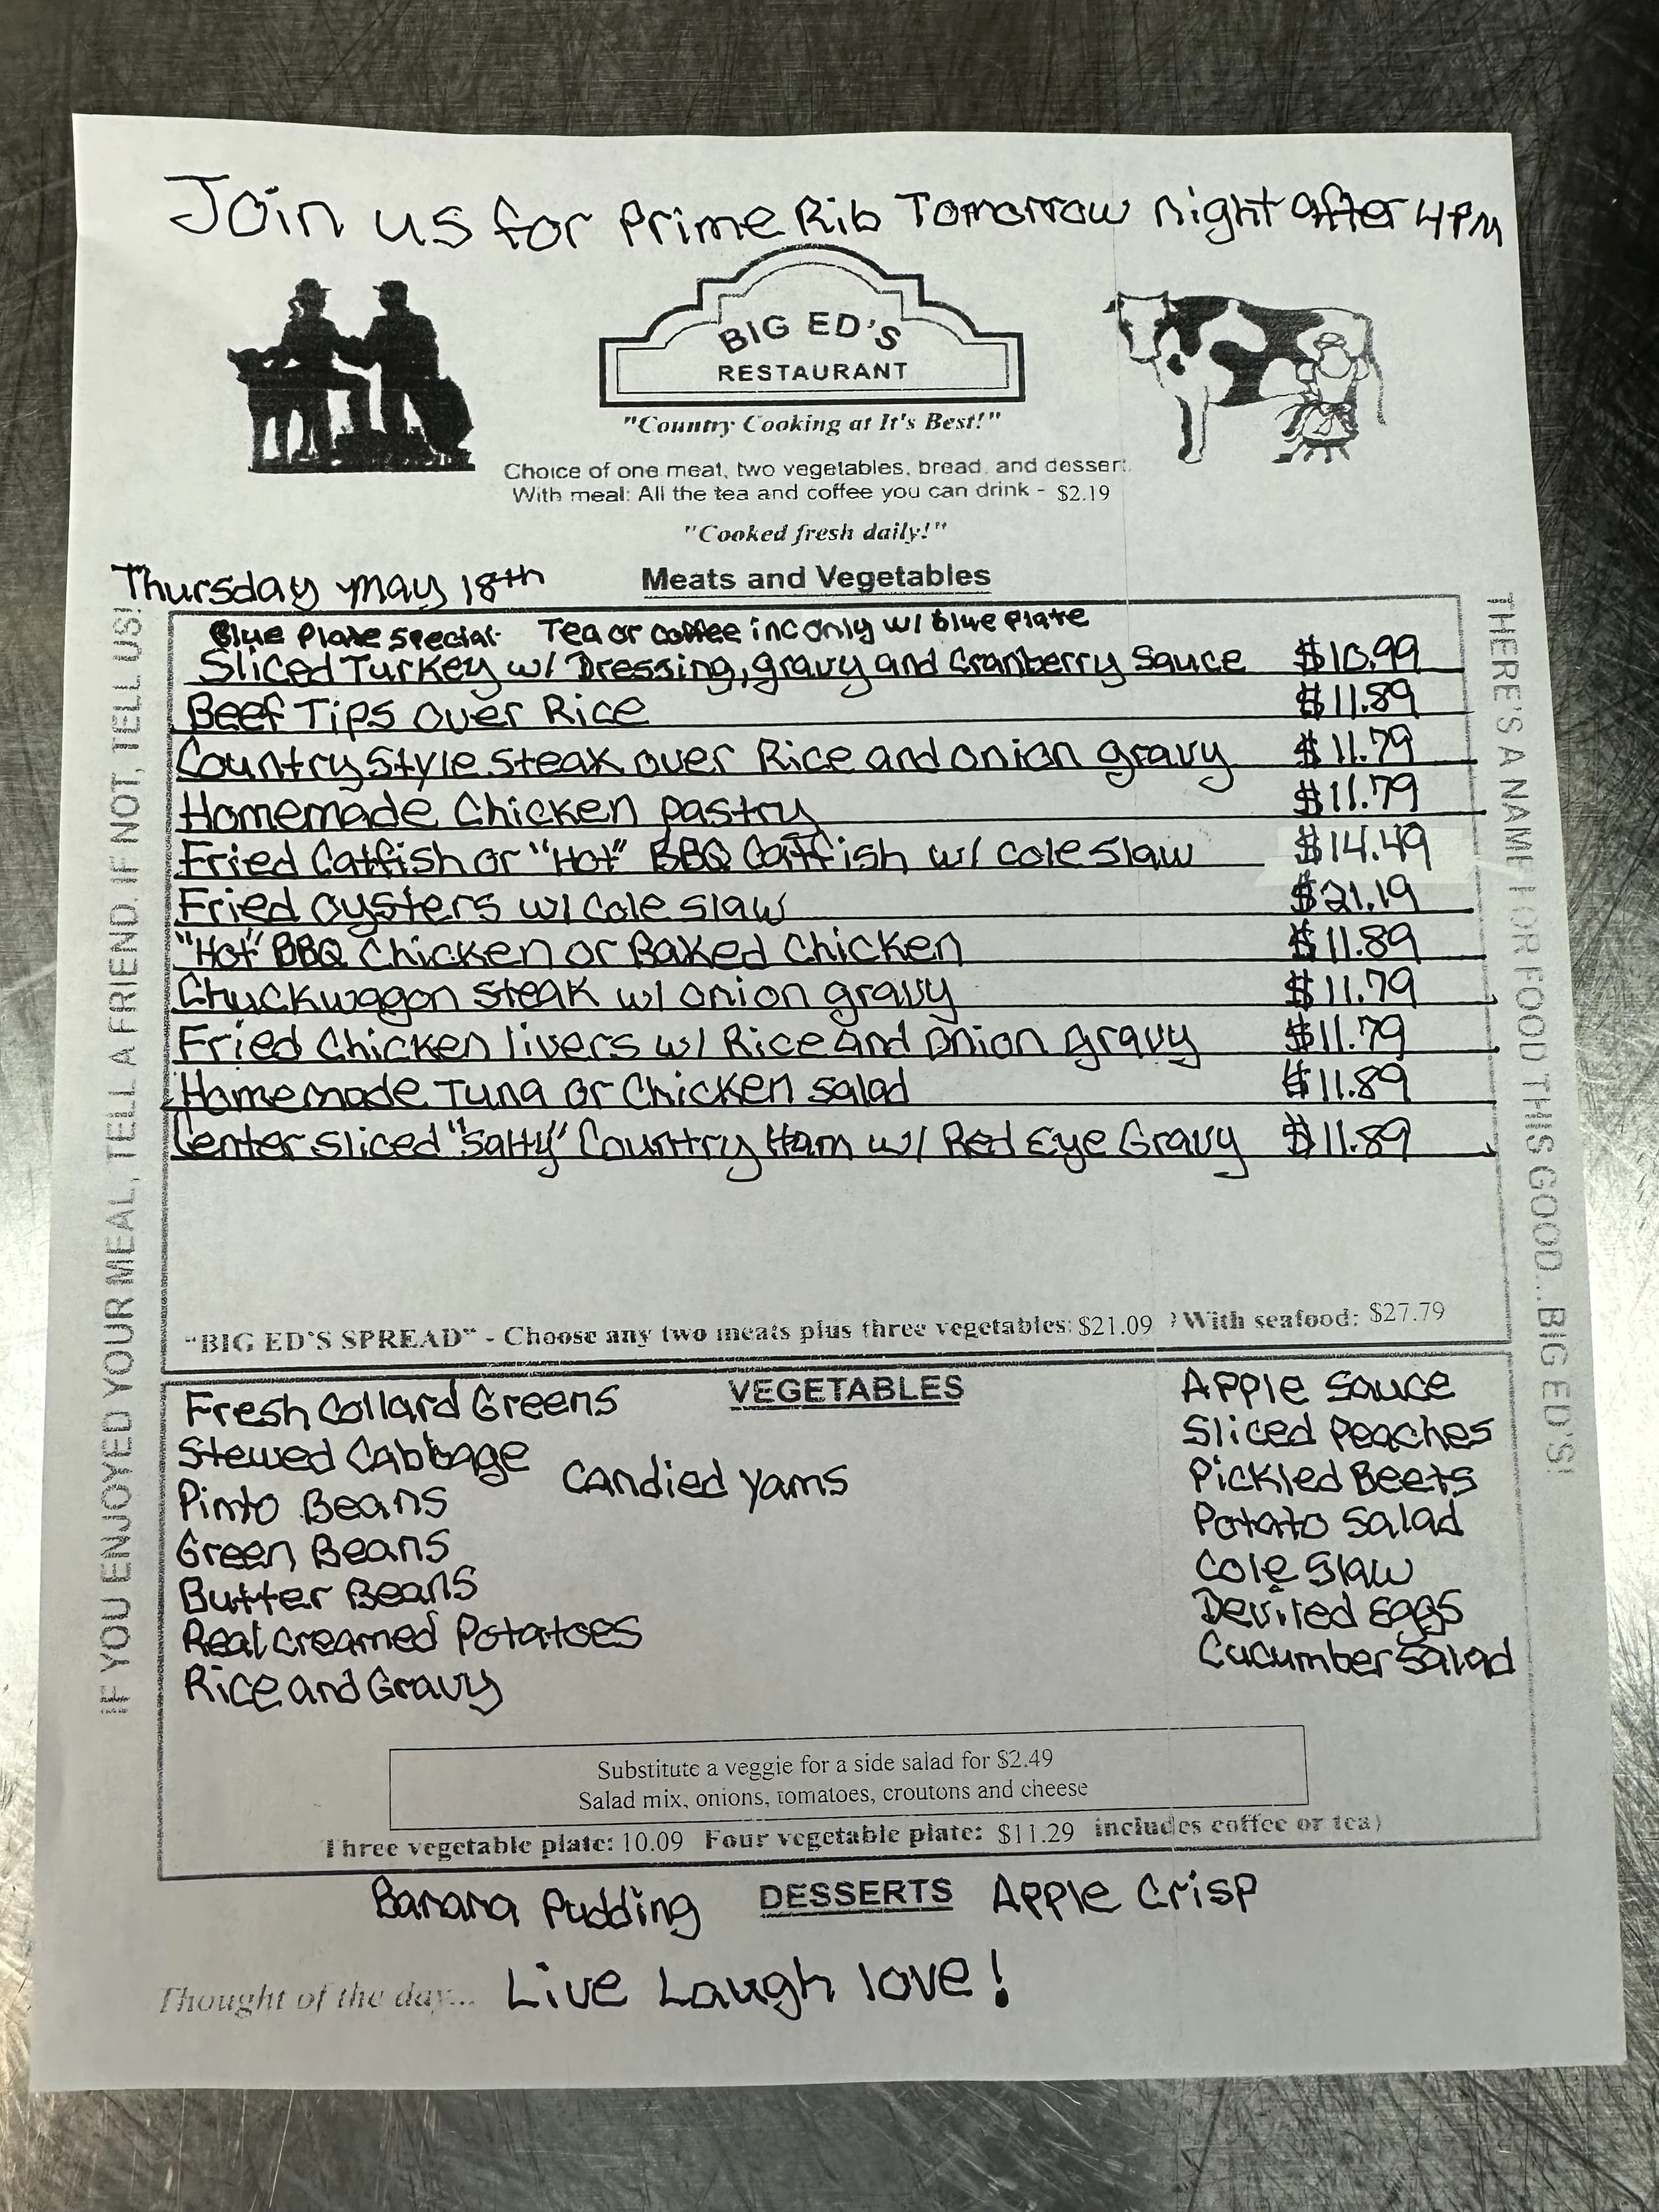 Join us for Prime Rib Tomorrow night after 4PM
BIG ED'S
RESTAURANT
"Country Cooking at It's Best!"
Choice of one meat, two vegetables, bread, and dessert.
With meal: All the tea and coffee you can drink - $2.19
"Cooked fresh daily!"
Thursday May 18th
Meats and Vegetables
IF YOU ENJOYED YOUR MEAL, TELL A FRIEND. IF NOT, TELL US!
THERE'S A NAME FOR FOOD THIS GOOD...BIG ED'S!
Blue Plate Special- Tea or Coffee inc only w/ blue Plate
Sliced Turkey w/ Dressing, gravy and Cranberry Sauce $10.99
Beef Tips over Rice $11.89
Country Style Steak over Rice and onion gravy $11.79
Homemade Chicken pastry $11.79
Fried Catfish or "Hot" BBQ Catfish w/ cole slaw $14.49
Fried oysters w/ Cole slaw $21.19
"Hot" BBQ Chicken or Baked Chicken $11.89
Chuckwagon Steak w/ onion gravy $11.79
Fried Chicken livers w/ Rice and Onion gravy $11.79
Homemade Tuna or Chicken salad $11.89
Center sliced "Salty" Country Ham w/ Red Eye Gravy $11.89
"BIG ED'S SPREAD" - Choose any two meats plus three vegetables: $21.09 With seafood: $27.79
VEGETABLES
Fresh Collard Greens
Stewed Cabbage
Pinto Beans
Green Beans
Butter Beans
Real creamed Potatoes
Rice and Gravy
Candied Yams
Apple Sauce
Sliced Peaches
Pickled Beets
Potato Salad
Cole Slaw
Deviled Eggs
Cucumber Salad
Substitute a veggie for a side salad for $2.49
Salad mix, onions, tomatoes, croutons and cheese
Three vegetable plate: 10.09 Four vegetable plate: $11.29 includes coffee or tea)
Banana Pudding DESSERTS Apple Crisp
Thought of the day... Live Laugh love!